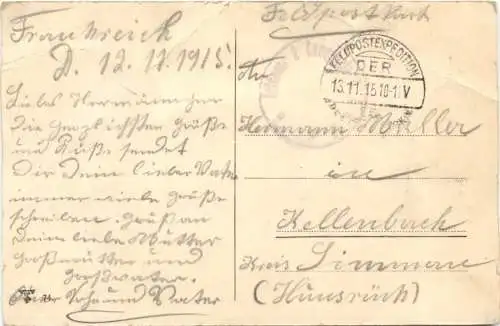 Frankreich
D. 12.11.1915.
Liebes Hermännchen
die herzlichsten Grüße
und Küße sendet
Dir Dein lieber Vater
immer viele Grüße
schreiben. Gruß an
Deine liebe Mutter
Großmutter und
Großvater.
Vater
Feldpostkart
FELDPOSTEXPEDITION
DER
13.11.15 10-11V
An
Hermann Müller
in
Kellenbach
Kreis Simmern
(Hunsrück)